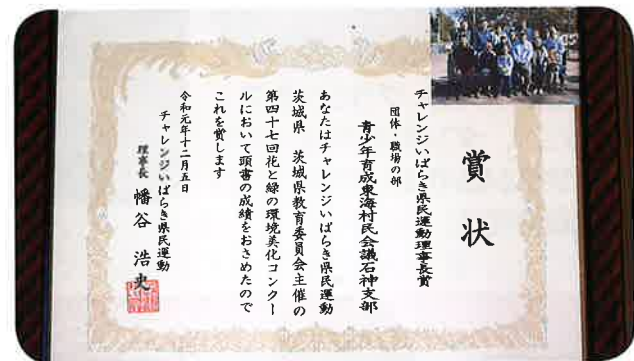 賞状
チャレンジいばらき県民運動理事長賞
団体・職場の部
青少年育成東海村民会議石神支部
あなたはチャレンジいばらき県民運動
茨城県 茨城県教育委員会主催の
第四十七回花と緑の環境美化コンクー
ルにおいて頭書の成績をおさめたので
これを賞します
令和元年十二月五日
チャレンジいばらき県民運動
理事長 幡谷 浩史